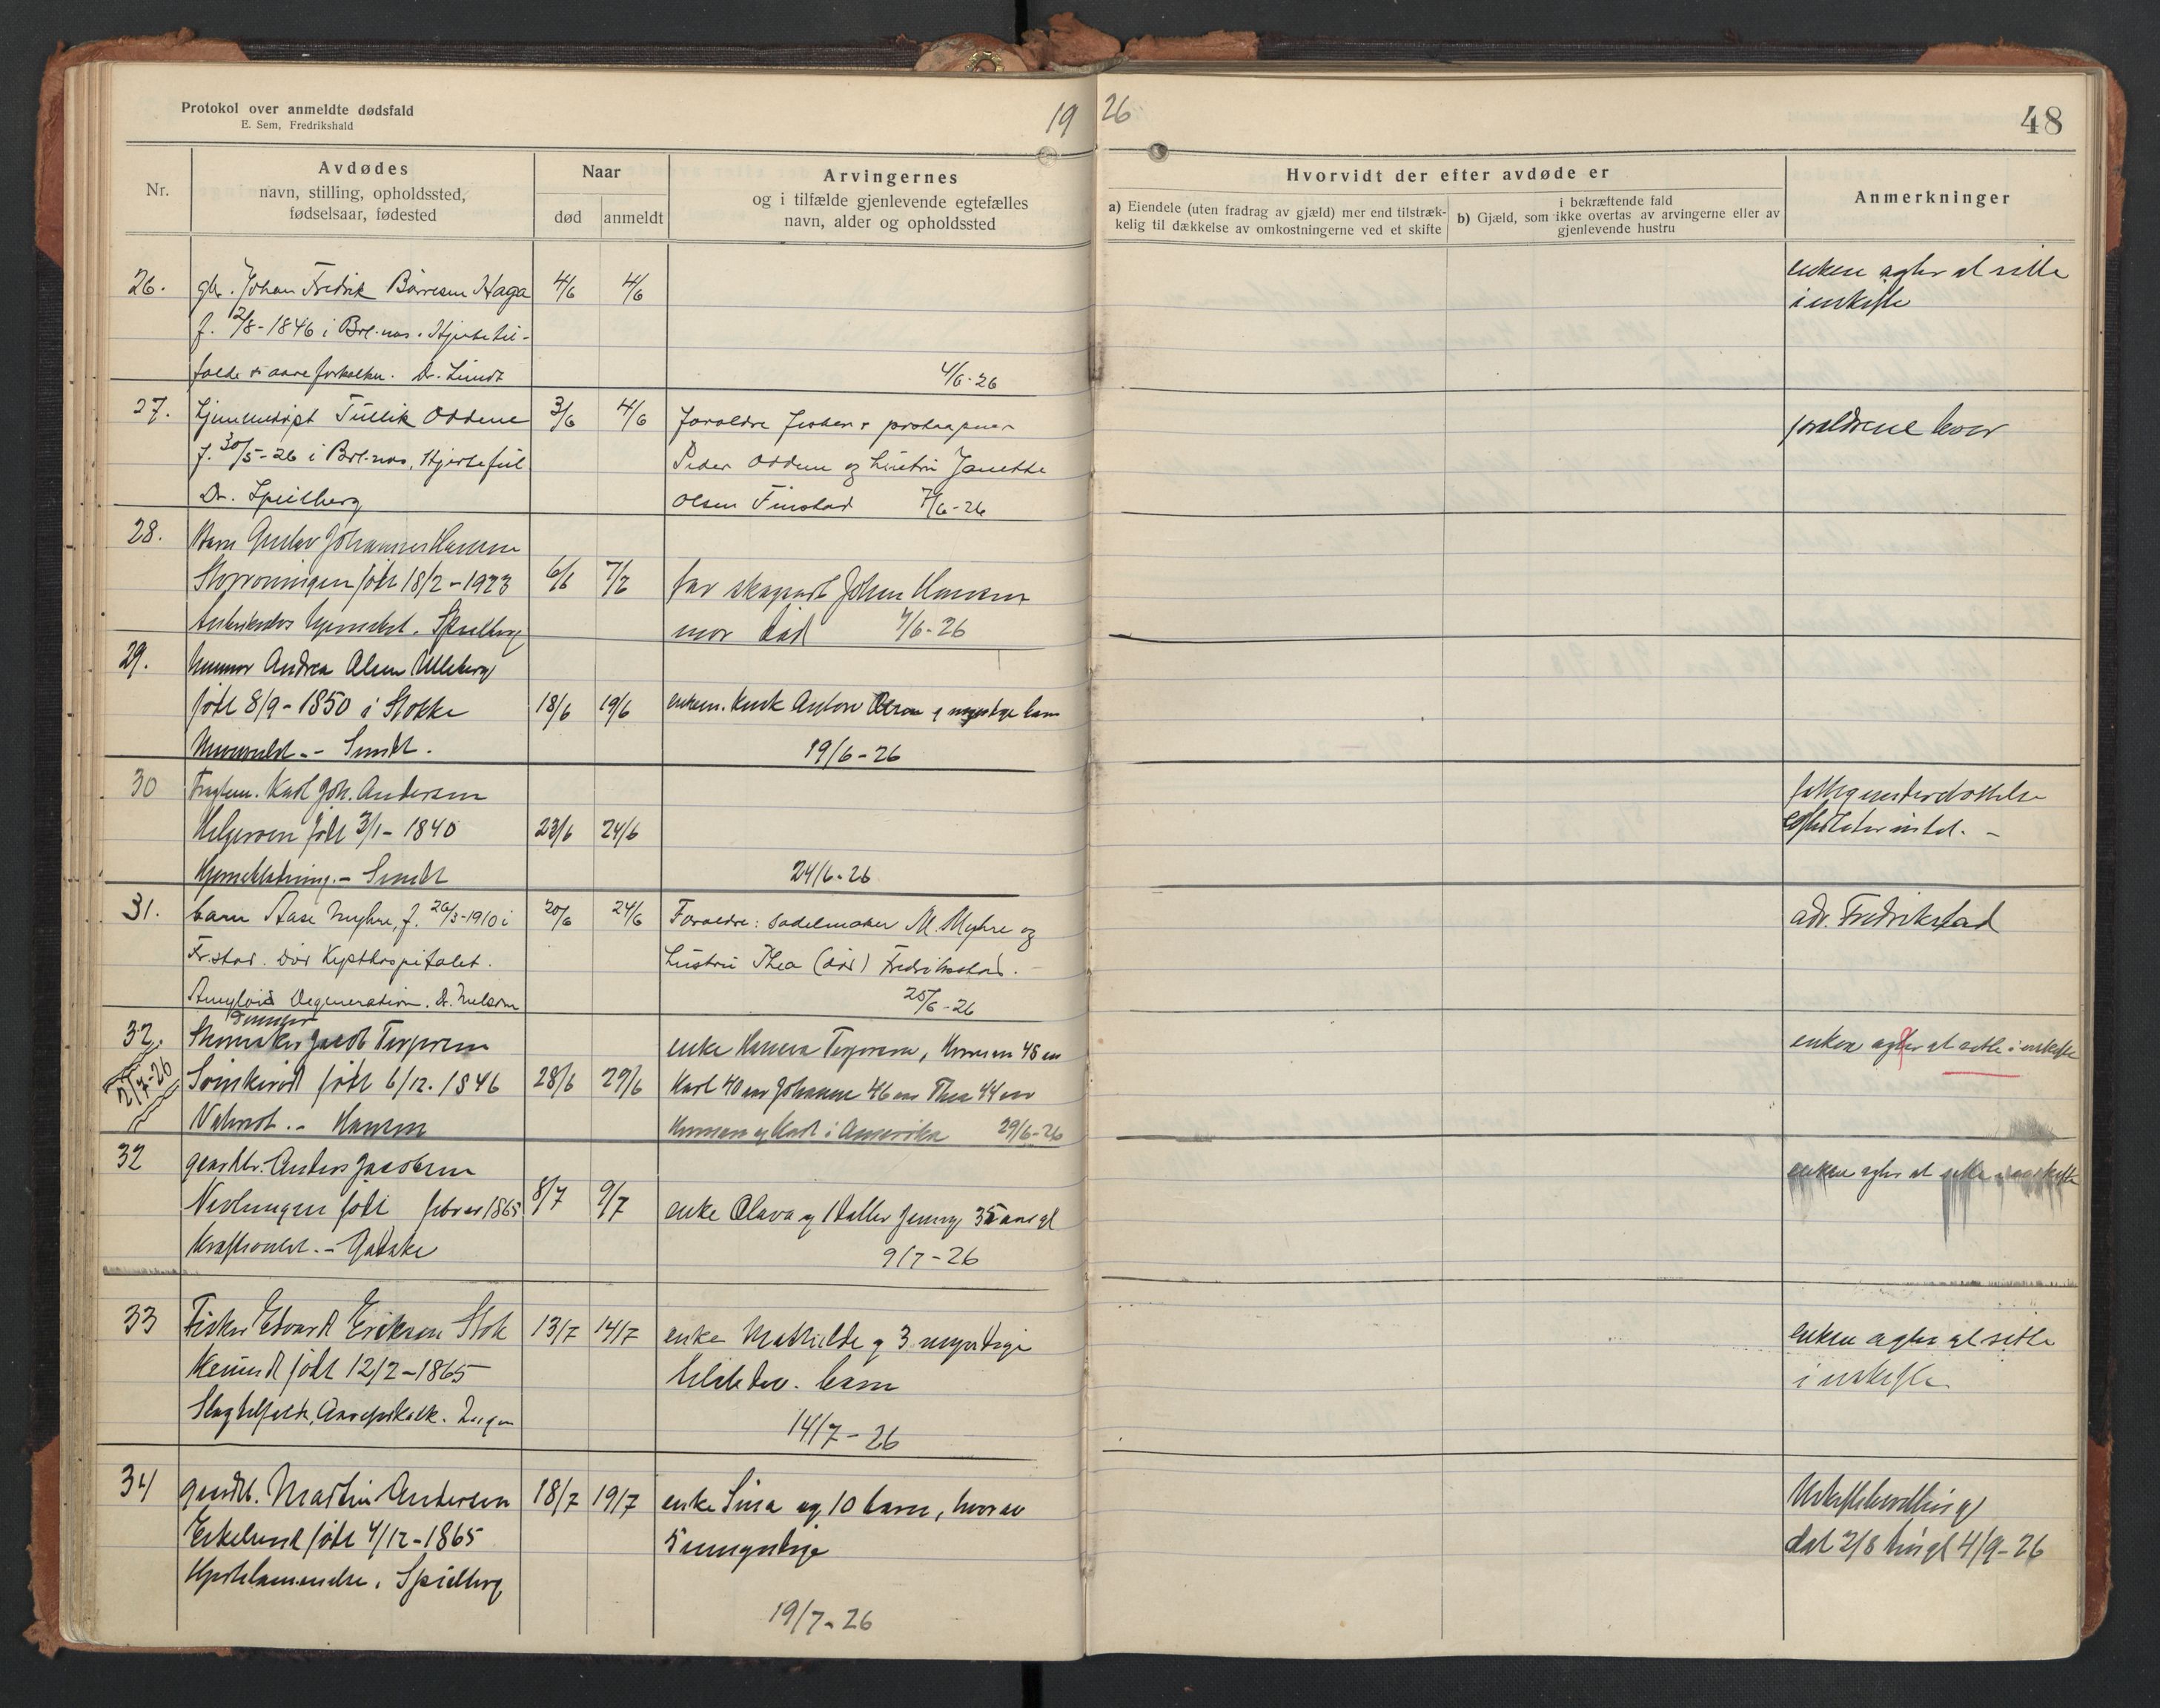 Protokol over anmeldte dødsfald
E. Sem, Fredrikshald
19 26
48
Nr.
Avdødes
navn, stilling, opholdssted,
fødselsaar, fødested
Naar
død
anmeldt
Arvingernes
og i tilfælde gjenlevende egtefælles
navn, alder og opholdssted
Hvorvidt der efter avdøde er
a) Eiendele (uten fradrag av gjæld) mer end tilstræk-
kelig til dækkelse av omkostningerne ved et skifte
i bekræftende fald
b) Gjæld, som ikke overtas av arvingerne eller av
gjenlevende hustru
Anmerkninger
26.
gbr. Johan Fredrik Børresen Haga
4/6
4/6
enken agter at sitte
i uskifte
f. 2/8-1846 i Brl.nes. Hjertetil-
fælde + aareforkalkn. Dr. Sundt
4/6-26
27.
Hjemmedøpt Tullik Oddene
3/6
4/6
Foreldre fisker
Peder Oddene og hustru Janette
Olsen Finstad 7/6-26
foreldrene lever
f. 30/5-26 i Brl.nes, Hjertefeil
Dr. Spielberg
28.
Barn Gustav Johannes Hansen
født 18/2-1923
6/6
7/7
far Johan Hansen
mor død 7/6-26
Spielberg
29.
Andrea Olsen Ulleberg
født 8/9-1850 i Stokke
18/6
19/6
enkem. Anton Olsen og myndige barn
Sundt.
19/6-26
30
Karl Joh. Andersen
Helgeroen født 3/1-1840
23/6
24/6
fattigunderstøttelse
efterlater intet. -
Sundt
24/6-26
31.
barn Aase Myhre, f. 26/3-1910 i
20/6
24/6
Foreldre: sadelmaker M. Myhre og
adr. Fredrikstad
Fr.stad. Død Kysthospitalet.
hustru Thea (død) Fredrikstad.
Amyloid Degeneration. Dr.
25/6-26
32.
Jacob Terjesen
enke Terjesen, Herman 48 aar
enken agter at sitte i uskifte
2/7-26
født 6/12. 1846
28/6
29/6
Karl 40 aar Johanne 46 aar Thea 44 aar
Hansen
Herman og Karl i Amerika 29/6-26
32
gaardbr. Anders Jacobsen
enken agter at sitte i uskifte
Nevlungen født febr 1865
8/7
9/7
enke Olava og 1 datter Jenny 35 aar gl
9/7-26
33
Fisker Edvard Eriksen Stok
13/7
14/7
enke Mathilde og 3 myndige
enken agter at sitte
i uskifte
født 12/2-1865
barn
Slagtilfælde, Aareforkalk.
14/7-26
34
gaardb. Martin Andersen
18/7
19/7
enke Sina og 10 barn, hvorav
5 umyndige
Uskiftebevilling
dat 2/8 tingl 4/9-26
født 4/12-1865
Hjertelammelse. Spielberg
19/7-26